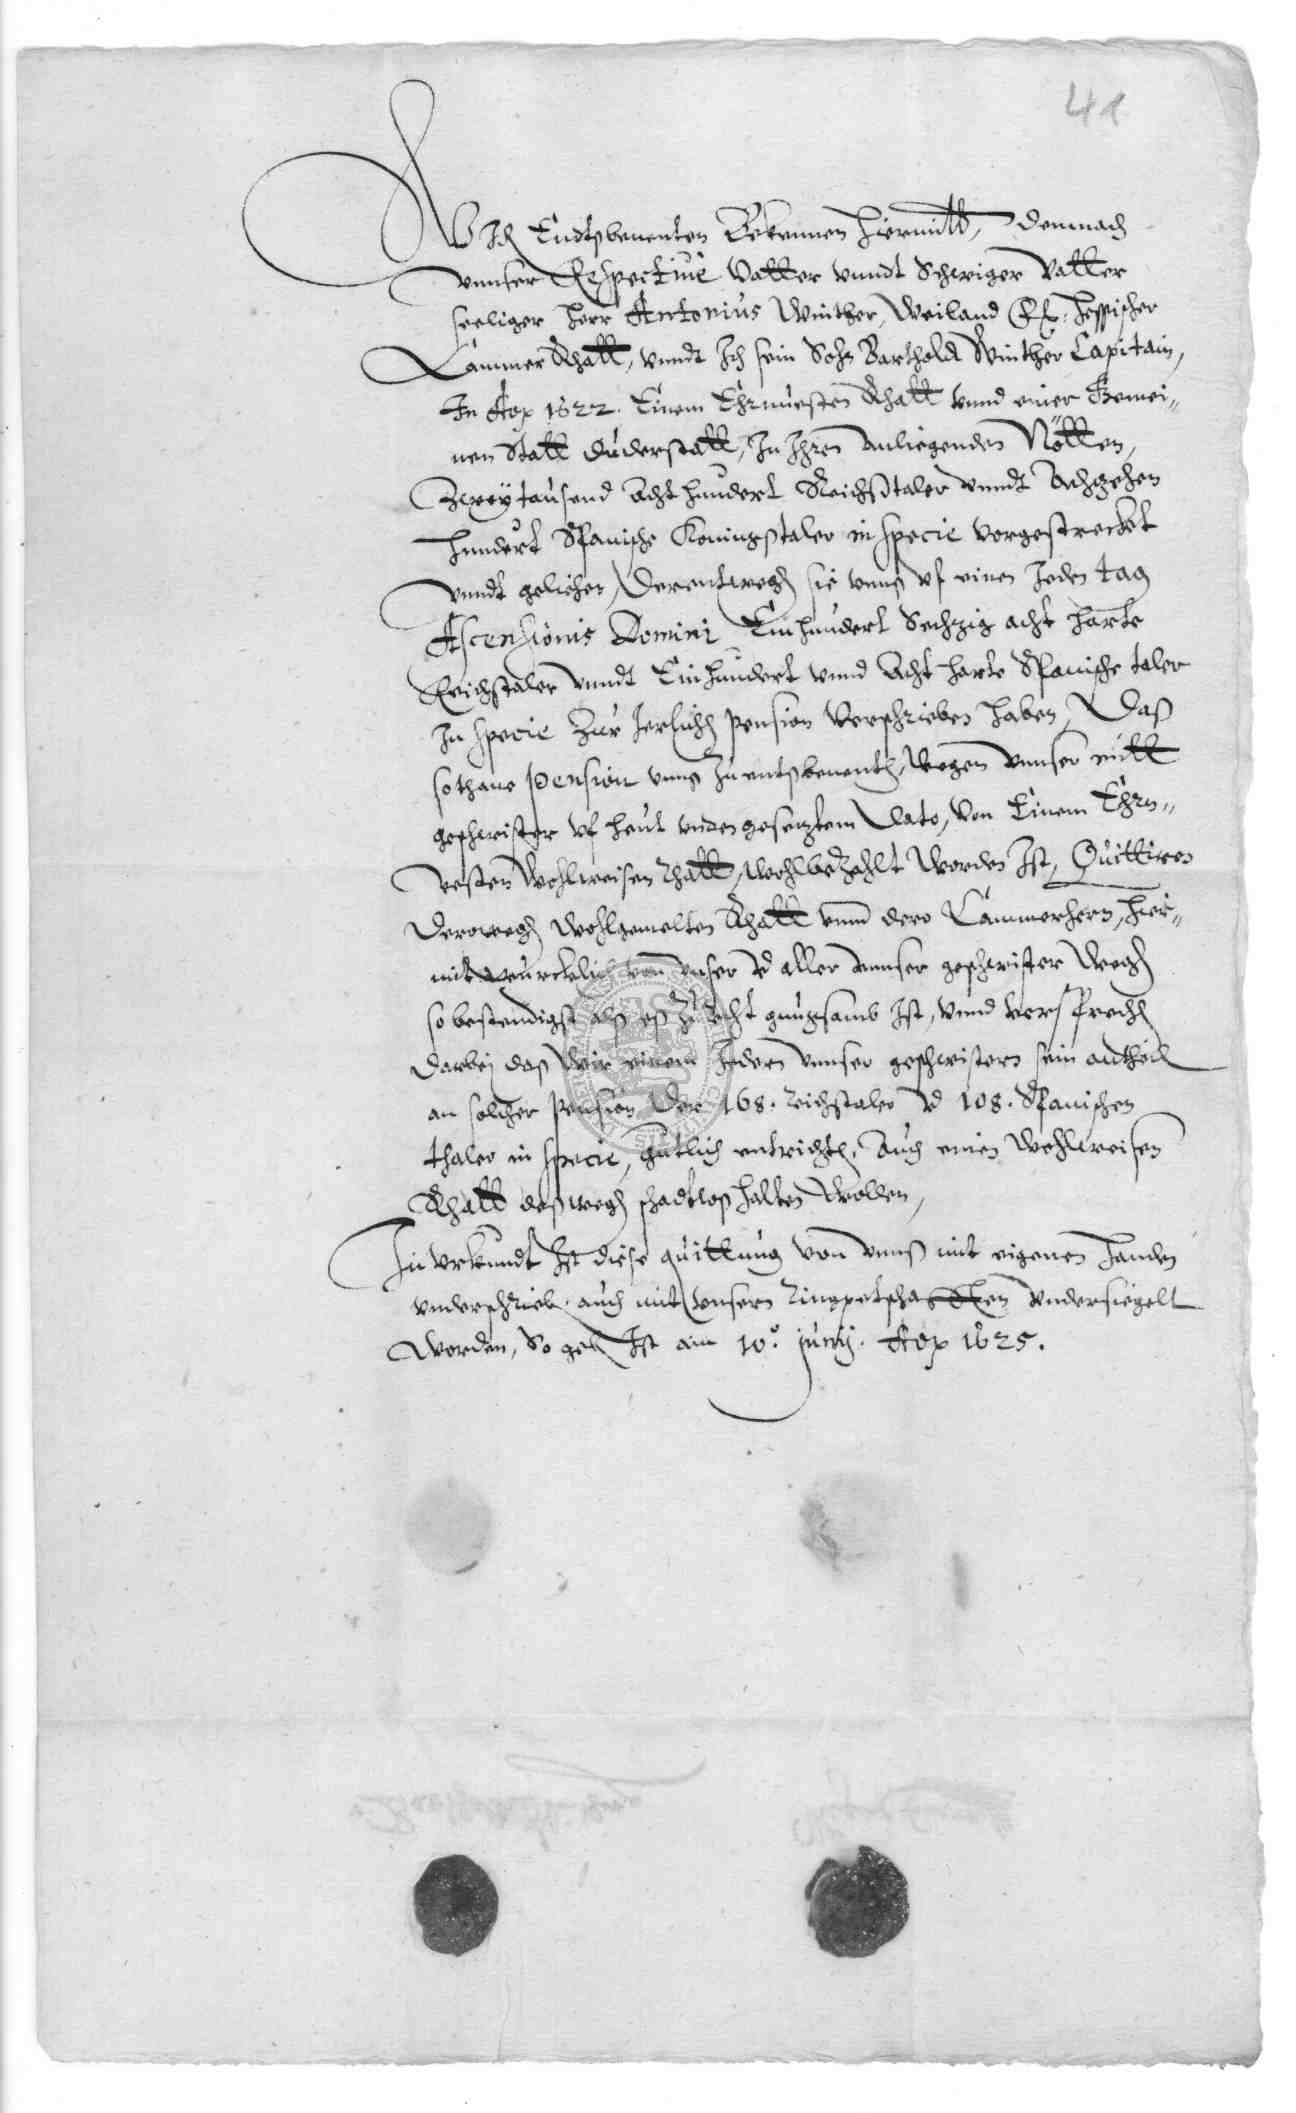 41
Wir Endtsbenenten Bekennen hiermitt, Demnach
vnnser Respectiuè Vatter vnndt Schwiger Vatter
seeliger Herr Antonius Winther, Weiland Hessischer
Cammer Rhatt, vnndt Ich sein Sohn Barthold Winther Capitain,
In Aõ 1622. Einem Ehrnuesten Rhatt vnnd einer Gemei-
nen Statt Duderstatt, In Ihren anliegenden Nötten,
Zweÿtausend Acht hundert Reichstaler vnndt Achzehen
hundert Spanische Koningstaler in specie vorgestrecket
vnndt geliehen, Derentwegen sie vnnß vf einen Jeden tag
Ascensionis Domini Einhundert Sechzig acht harte
Reichstaler vnndt Einhundert vnnd Acht harte Spanische taler
In specie Zur Jerlichen pension Verschrieben haben, Daß
sothane pension vnnß Zu entsbenenten, Wegen vnnser mitt
geschwister vf heut vnden gesetztem Dato, Von Einem Ehrn-
vesten Wohlweisen Rhatt, wohlbezahlt worden Ist, Quittiren
Derowegen wohlgemelten Rhatt vnnd dero Cammerhern, hier-
mit wurcklich von vnser vnd aller vnnser geschwister wegen
so bestendigst alß eß Zu Recht gnugsamb Ist, vnnd versprechen
darbei daß wir einem Jedern vnnser geschwistern sein antheil
an solcher pension der 168. reichstaler vnd 108. Spanischen
thaler in specie, gutlich entrichten, Auch einen Wohlweisen
Rhatt deßwegen schadtloß halten wollen,
In Vrkundt Ist diese quittung von vnnß mit eigenen Handen
vnderschrieben auch mit vnsern Ringpetschafften vndersiegelt
worden, So geschehen Ist am 10.º junij. Aõ 1625.